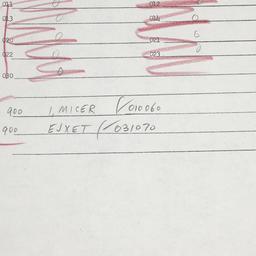 011 0 012
013 0 014 0
020 0 021 0
022 0 023 0
030 0
900 I, MICER √010060
900 EJXET √031070